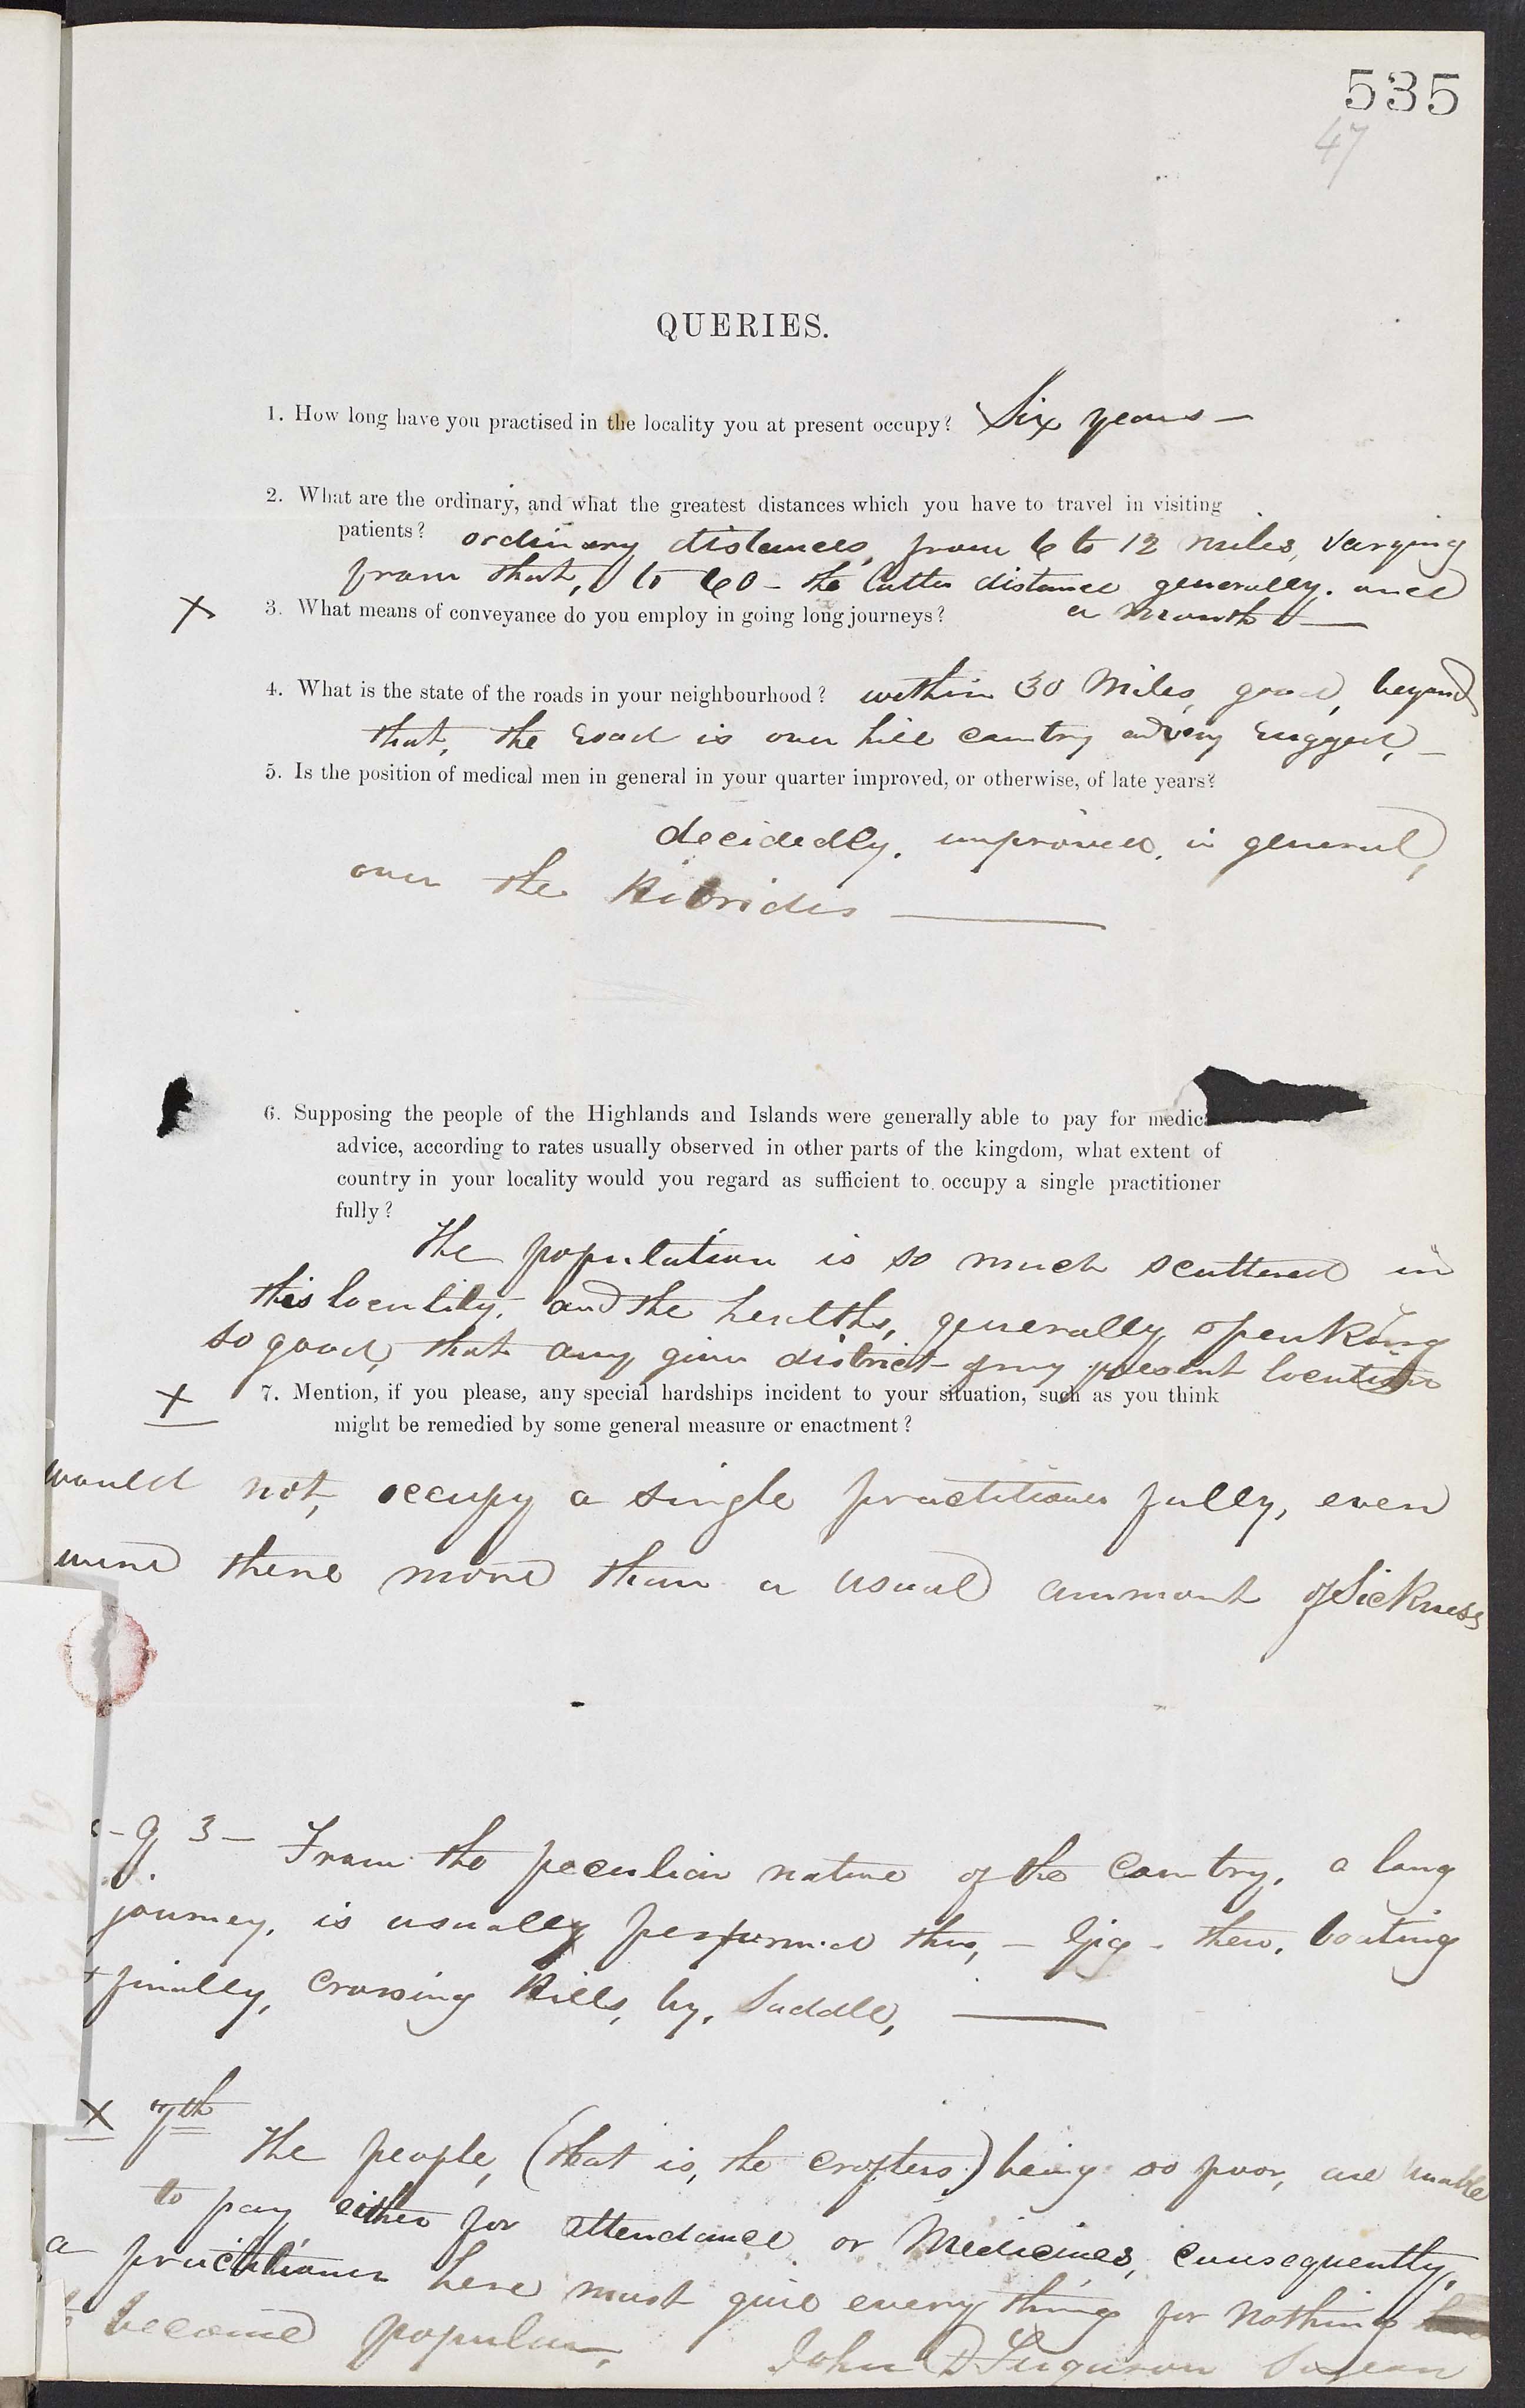 535
47
QUERIES.
1. How long have you practised in the locality you at present occupy? Six years —
2. What are the ordinary, and what the greatest distances which you have to travel in visiting
patients? ordinary distances, from 6 to 12 miles, varying
from that, to 60 - the latter distance generally. once
a month —
X 3. What means of conveyance do you employ in going long journeys?
4. What is the state of the roads in your neighbourhood? within 30 Miles, good, beyond
that, the road is over hill country and very rugged, —
5. Is the position of medical men in general in your quarter improved, or otherwise, of late years?
decidedly. improved, in general,
over the Hibrides —
6. Supposing the people of the Highlands and Islands were generally able to pay for medic
advice, according to rates usually observed in other parts of the kingdom, what extent of
country in your locality would you regard as sufficient to occupy a single practitioner
fully?
The population is so much scattered in
this locality, and the healths, generally speaking
so good, that any given district of my present location
X 7. Mention, if you please, any special hardships incident to your situation, such as you think
might be remedied by some general measure or enactment?
would not, occupy a single practitioner fully, even
were there more than a usual ammont of Sickness
- q 3 — From the peculiar nature of the Country, a long
journey, is usually performed thus, — Gig - then, boating
+ finally, Crossing Hills, by, Saddle, —
X 7th The people, (that is, the crofters) being so poor, are unable
to pay either for attendance or Medicines, consequently,
a practitioner here must give every thing for nothing
to become popular,
John D Ferguson Surgeon